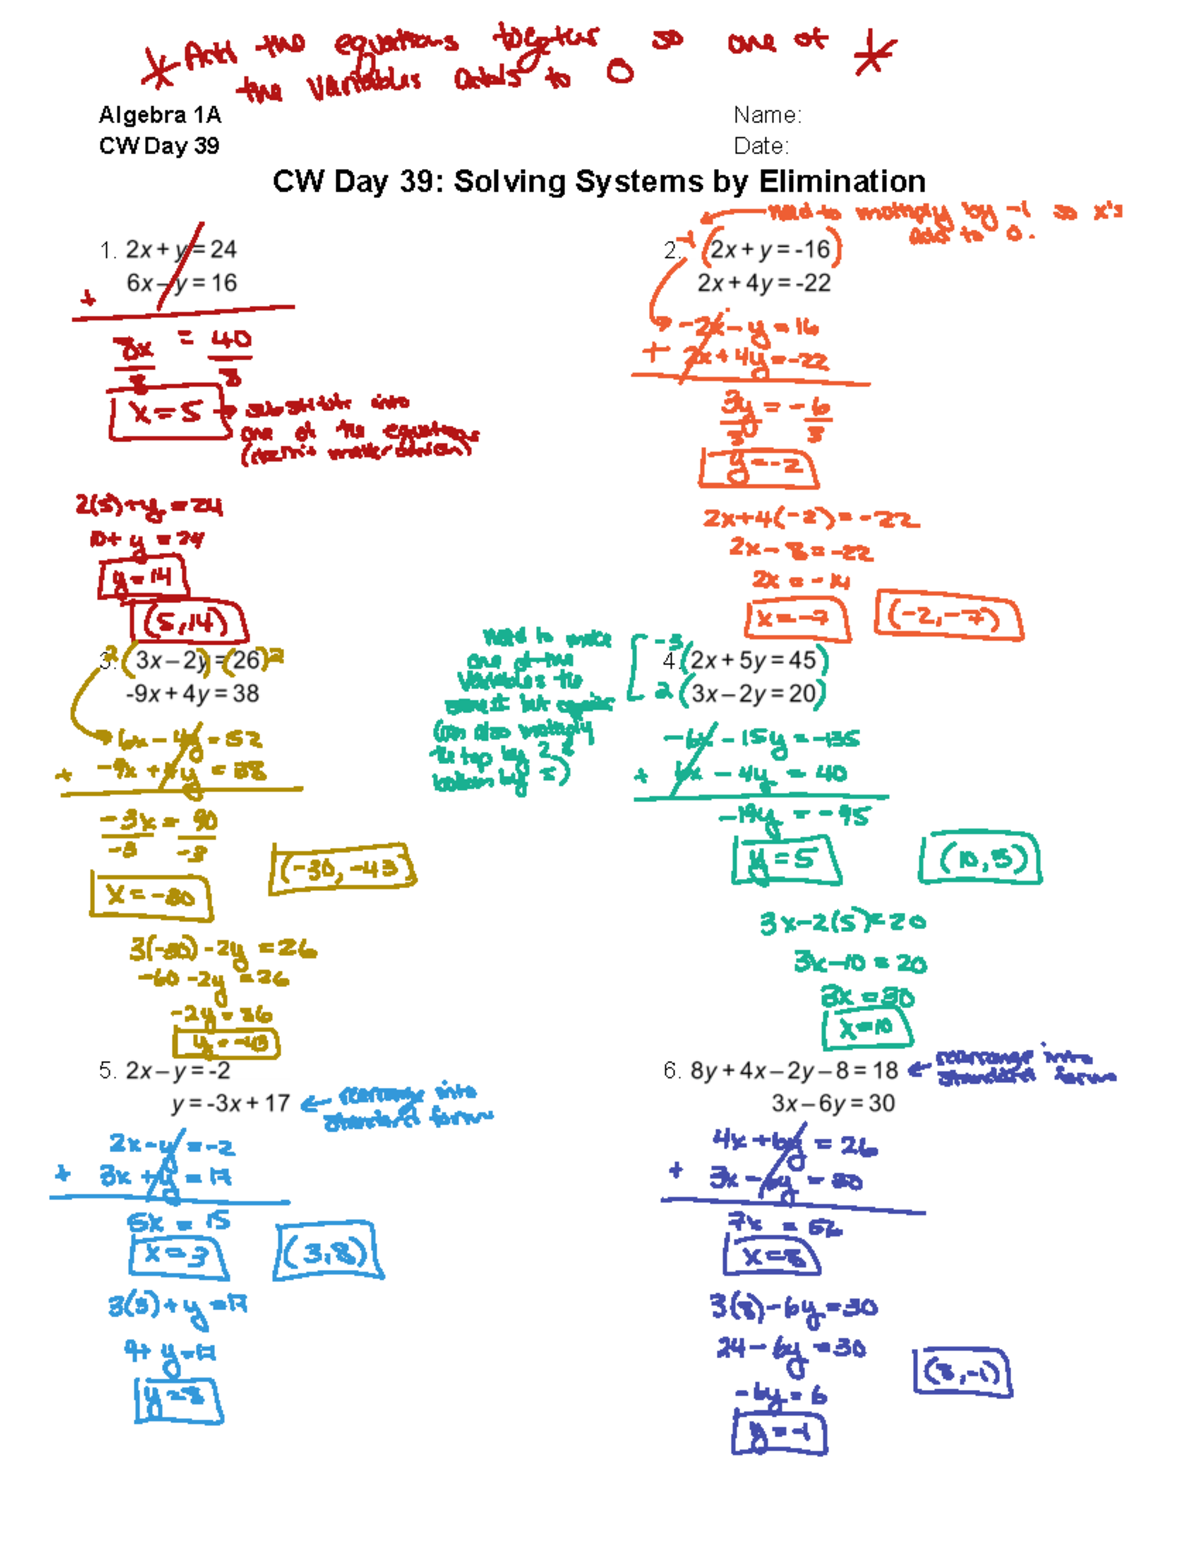 * Add the equations together so one of *
the variables adds to 0
Algebra 1A
Name:
CW Day 39
Date:
CW Day 39: Solving Systems by Elimination
1. 2x + y = 24
6x – y = 16
+
8x = 40
8 8
x = 5 → substitute into
one of the equations
(doesn't matter which)
2(5)+y = 24
10+ y = 24
y = 14
(5,14)
need to multiply by -1 so x's
adds to 0.
2. -1 (2x + y = -16)
2x + 4y = -22
-2x - y = 16
+ 2x + 4y = -22
3y = -6
3 3
y = -2
2x+4(-2) = -22
2x - 8 = -22
2x = -14
x = -7 (-2, -7)
3. 2(3x – 2y) = (26)2
-9x + 4y = 38
6x - 4y = 52
+ -9x + 4y = 38
-3x = 90
-3 -3
x = -30
(-30, -43)
3(-30) - 2y = 26
-60 - 2y = 26
-2y = 86
y = -43
need to make
one of the
variables the
same # but opposite
(can also multiply
the top by 2 &
bottom by 5)
4. -3(2x + 5y = 45)
2(3x – 2y = 20)
-6x - 15y = -135
+ 6x - 4y = 40
-19y = -95
y = 5
(10,5)
3x-2(5)=20
3x-10 = 20
3x = 30
x=10
5. 2x – y = -2
y = -3x + 17 ← rearrange into
standard form
2x-y = -2
+ 3x + y = 17
5x = 15
x = 3
(3,8)
3(3) + y = 17
9+ y = 17
y = 8
6. 8y + 4x – 2y – 8 = 18 ← rearrange into
standard form
3x – 6y = 30
4x + 6y = 26
+ 3x - 6y = 30
7x = 56
x = 8
3(8) - 6y = 30
24 - 6y = 30
-6y = 6
y = -1
(8,-1)